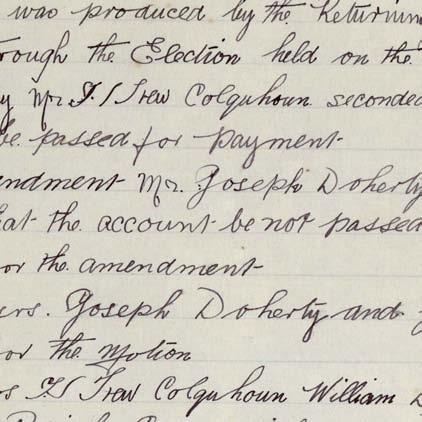 was produced by the Returnin
rough the Election held on the
y Mr. T J Trew Colquhoun seconded
be passed for payment
endment Mr. Joseph Doherty
hat the account be not passed
or the amendment
srs. Joseph Doherty and
or the Motion
rs T J Trew Colquhoun William D